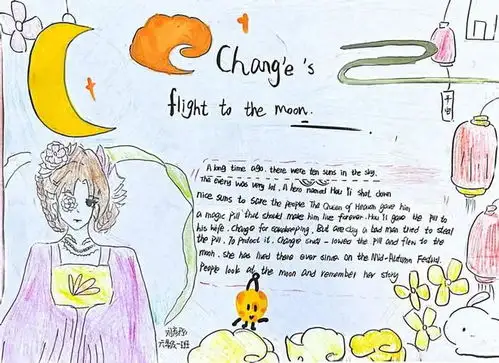 Chang'e's
flight to the moon.
A long time ago. there were ten suns in the sky.
The was very A hero named Hou Yi shot down
nice suns to save the people The Queen of Heaven gave him
a magic pill that should make him live forever. Hou Yi gave the pill to
his wife. Change for But one day a bad man tried to steal
the pill. To protect it. Change the pill and flew to the
moon. she has lived there ever since on the Mid-Autumn Festival
People look at the moon and remember her story
六年级一班